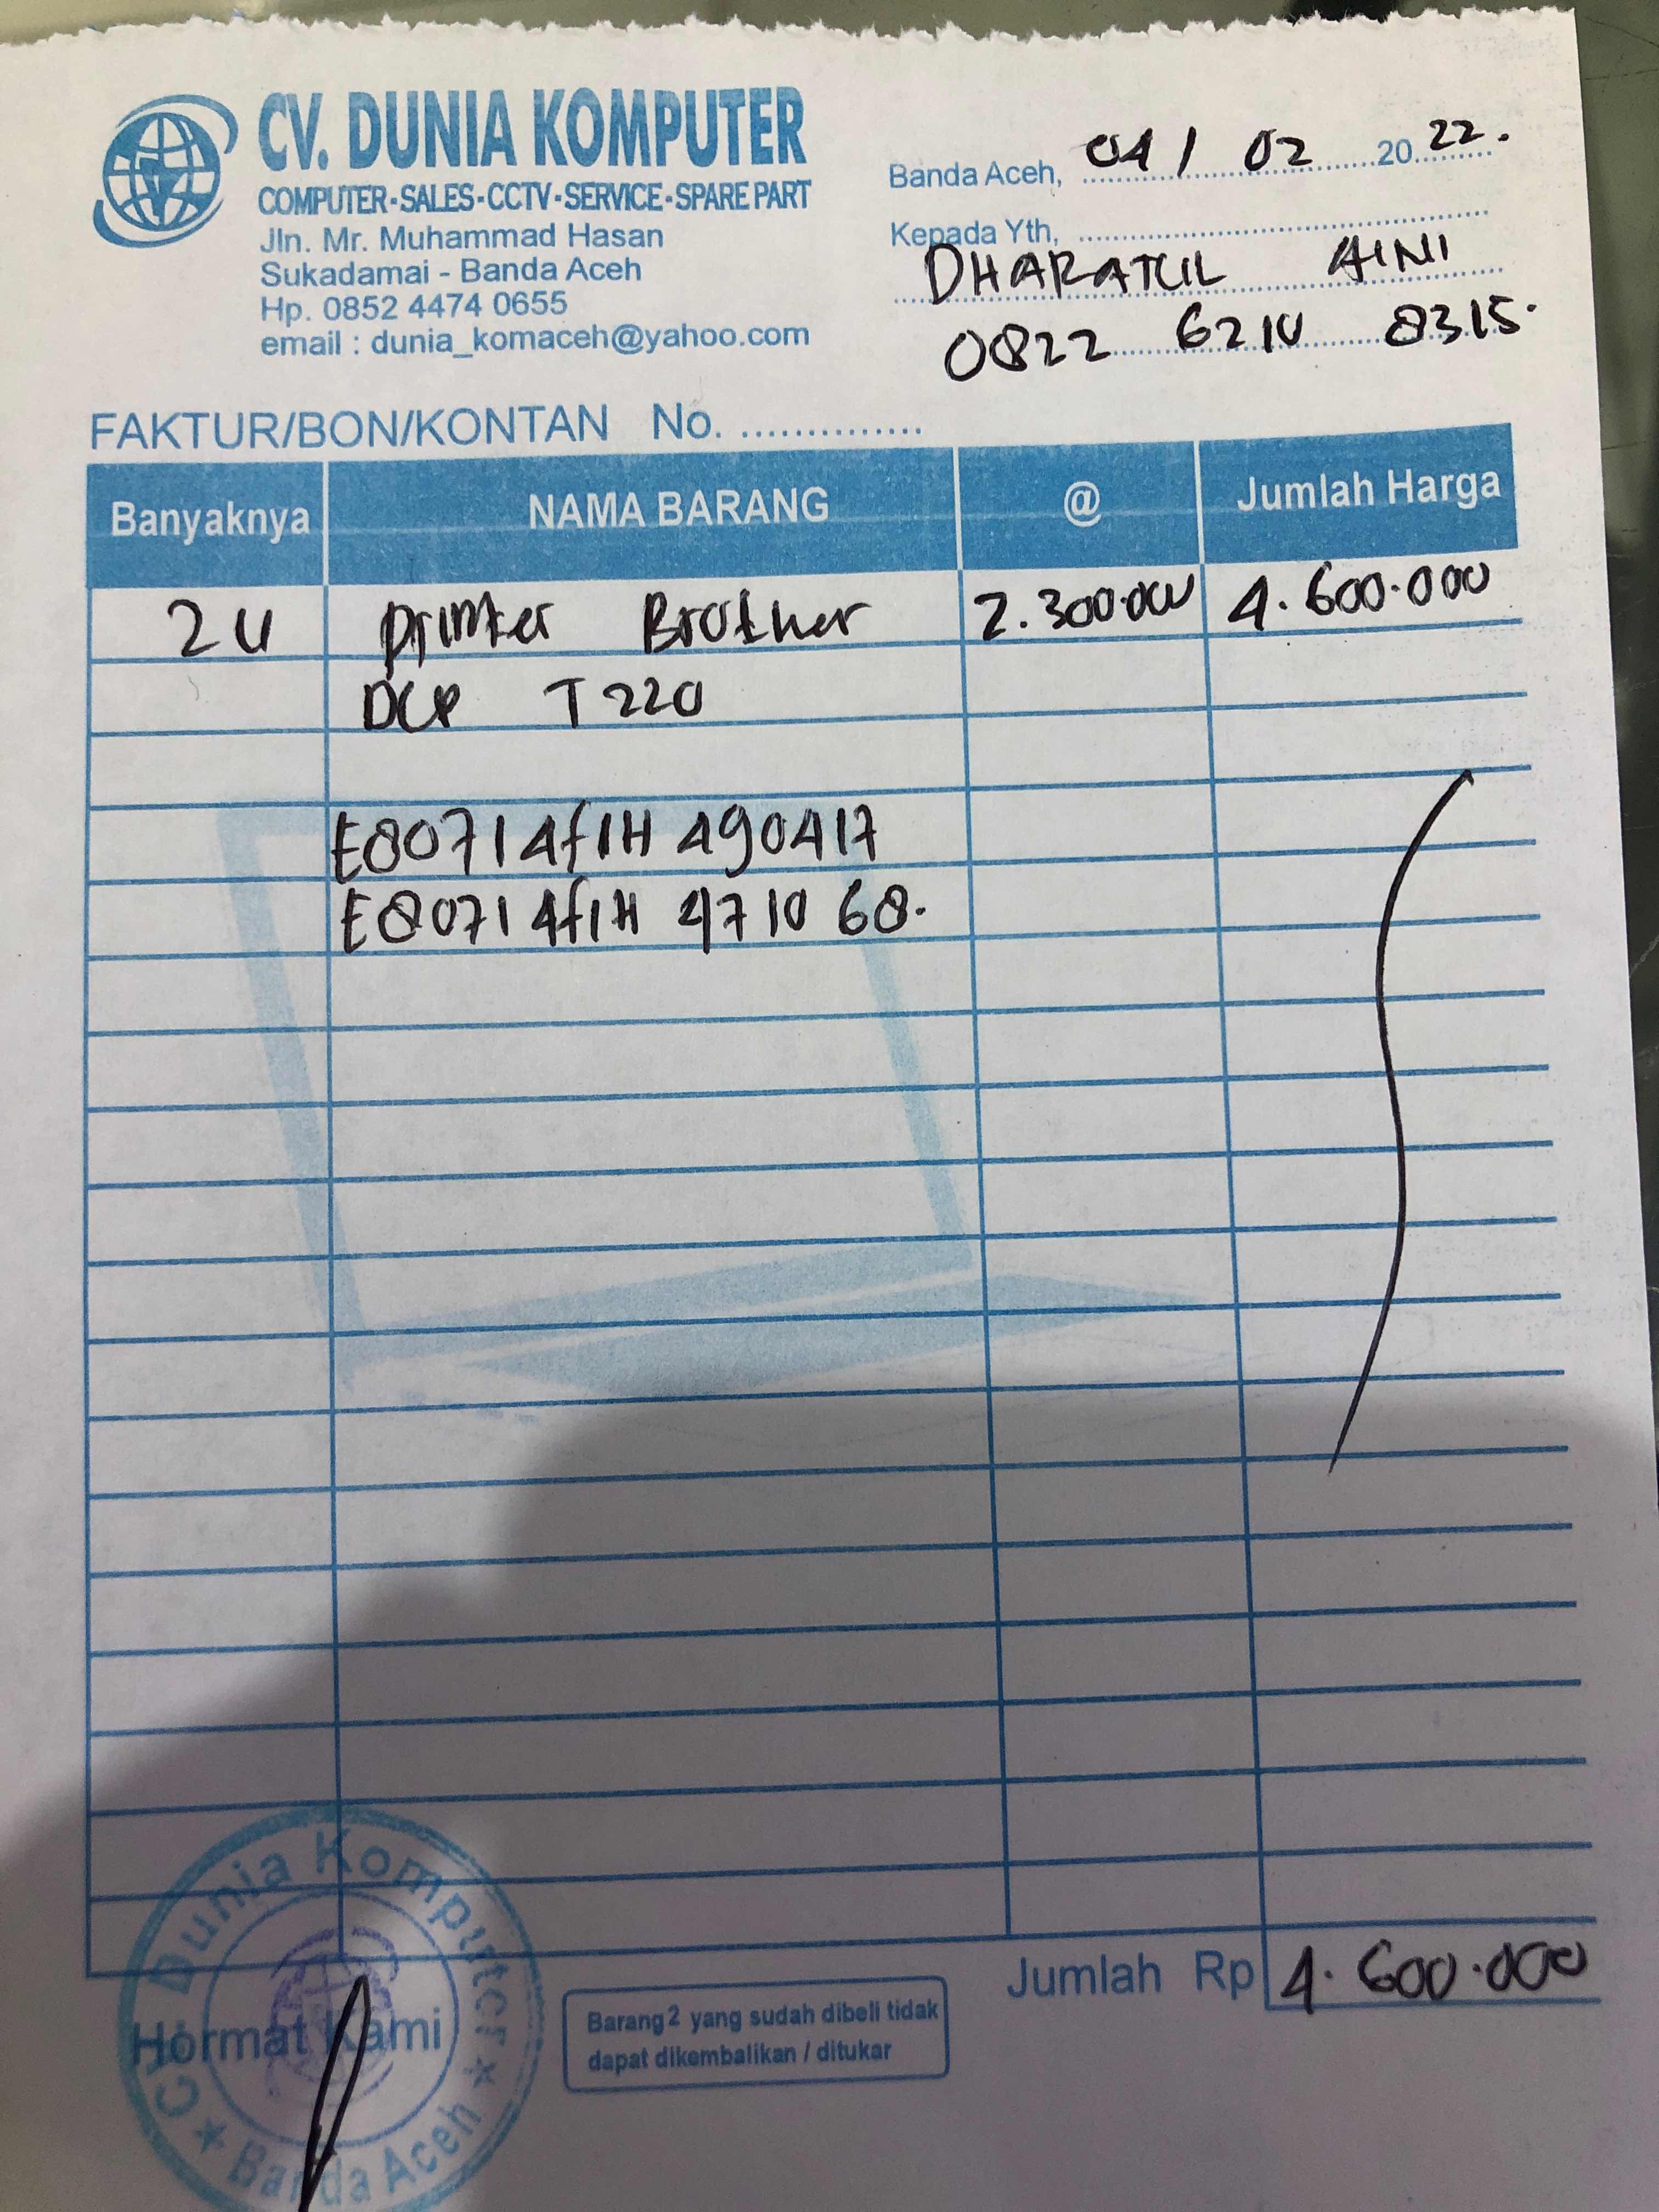 CV. DUNIA KOMPUTER
COMPUTER-SALES-CCTV-SERVICE-SPARE PART
Jln. Mr. Muhammad Hasan
Sukadamai - Banda Aceh
Hp. 0852 4474 0655
email : dunia_komaceh@yahoo.com
Banda Aceh, 04 / 02 20 22.
Kepada Yth,
DHARATUL AINI
0822 6210 8315.
FAKTUR/BON/KONTAN No. ...............
Banyaknya NAMA BARANG @ Jumlah Harga
2 U Printer Brother 2.300.000 4.600.000
DCP T220
E80714F1H 490417
E80714F1H 471068.
Jumlah Rp 4.600.000
Hormat Kami
Barang2 yang sudah dibeli tidak
dapat dikembalikan / ditukar
CV. Dunia Komputer
★ Banda Aceh ★